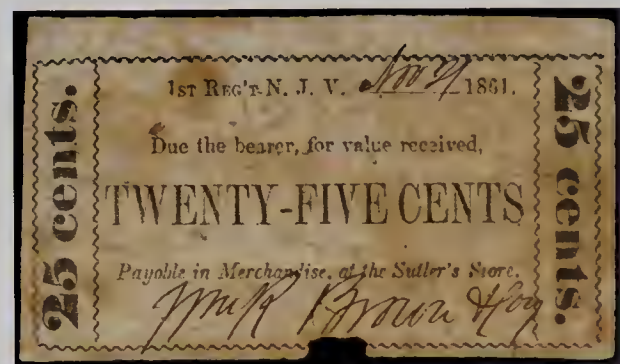 25 cents.
1ST REG'T. N. J. V. Nov 21 1861.
Due the bearer, for value received,
TWENTY-FIVE CENTS
Payable in Merchandise, at the Sutler's Store.
Wm R Brown
25 cents.